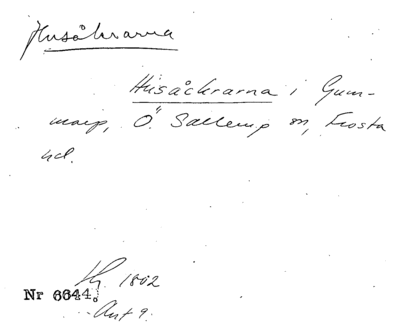 Husåkrarna
Husåkrarna i Gum-
marp, Ö. Sallerup sn, Frosta
hd.
1802
Nr 6644.
Akt 9.